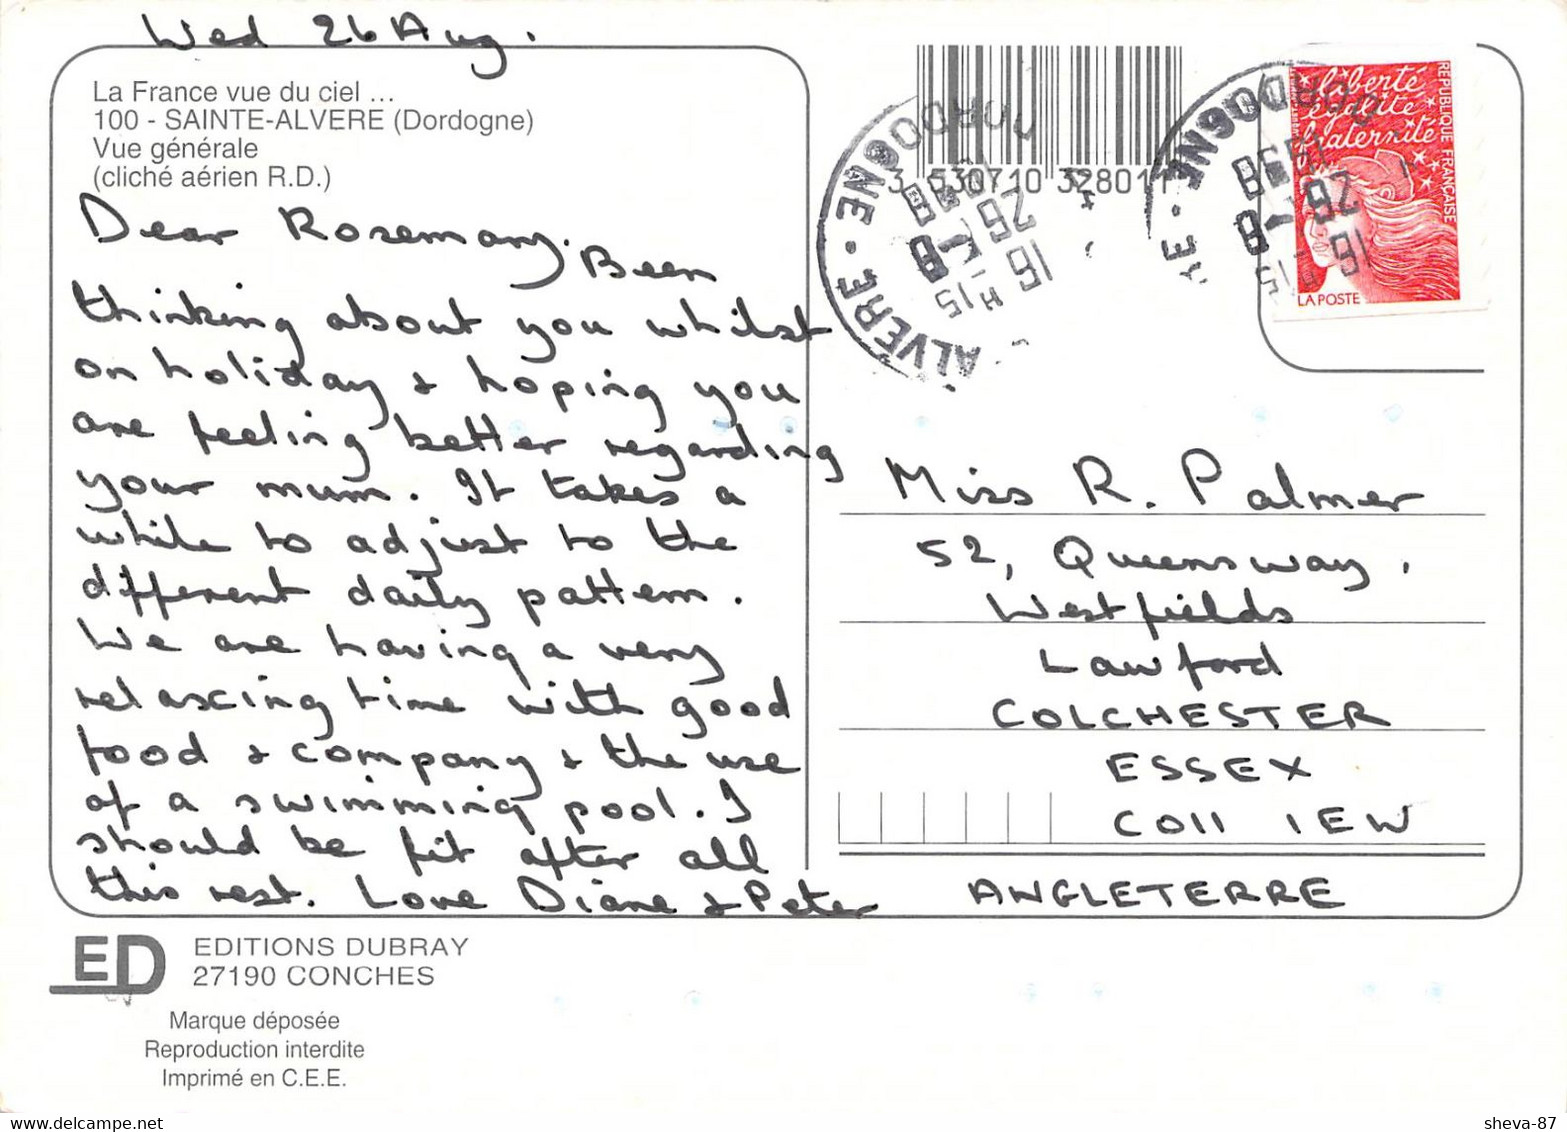 Wed 26 Aug.
La France vue du ciel ...
100 - SAINTE-ALVERE (Dordogne)
Vue générale
(cliché aérien R.D.)
Dear Rosemary. Been
thinking about you whilst
on holiday & hoping you
are feeling better regarding
your mum. It takes a
while to adjust to the
different daily pattern.
We are having a very
relaxing time with good
food & company & the use
of a swimming pool. I
should be fit after all
this rest. Love Diane & Peter
3 530710 328011
ALVERE · DORDOGNE
16 H 15
26 - 8
1998
DORDOGNE
16 H 15
26 - 8
1998
liberté
égalité
fraternité
REPUBLIQUE FRANÇAISE
LA POSTE
Miss R. Palmer
52, Queensway,
Westfields
Lawford
COLCHESTER
ESSEX
CO11 1EW
ANGLETERRE
ED
EDITIONS DUBRAY
27190 CONCHES
Marque déposée
Reproduction interdite
Imprimé en C.E.E.
sheva-87